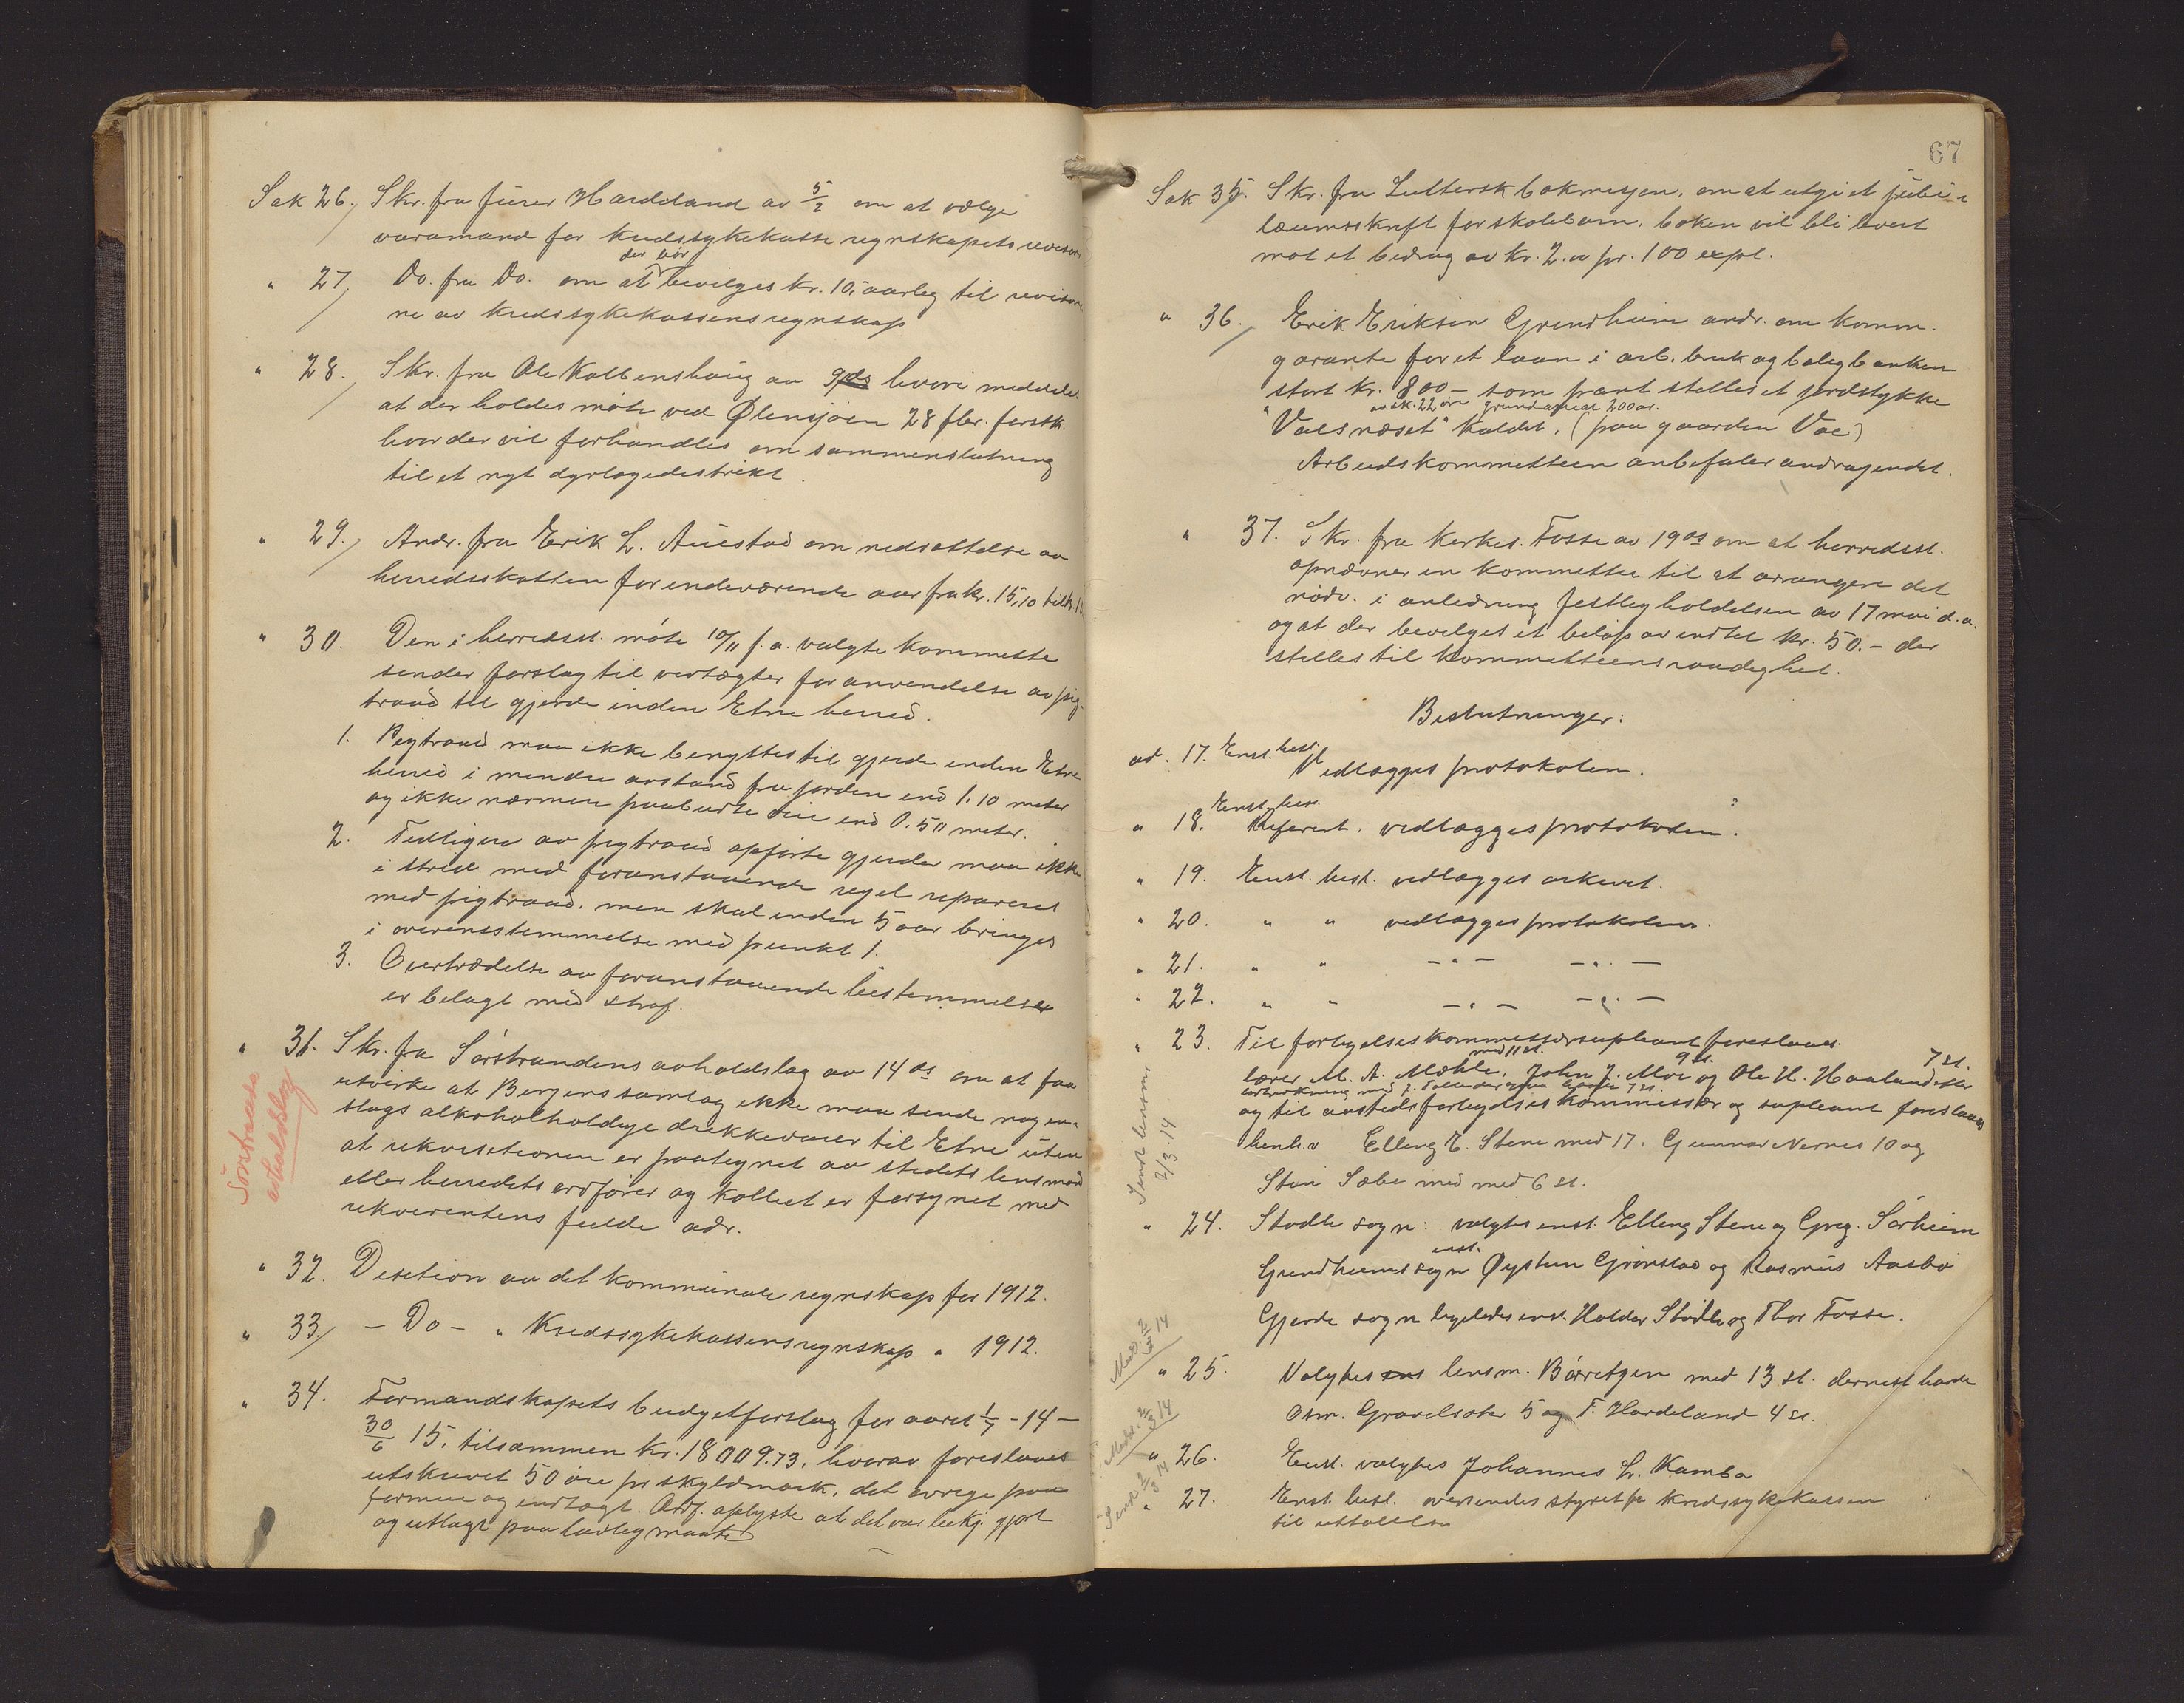 Sak 26. Skr. fra Hardeland av 5/2 om at vælge
varamand for kredssykekasse regnskapets revisor
" 27. Do. fra Do. om at der bør bevilges kr. 10,- aarleg til revisore
ne av kredssykekassens regnskap
" 28. Skr. fra Ole Kolbenshaug av 9ds hvori meddeles
at der holdes møte ved Ølensjøen 28 fbr. førstk.
hvor der vil forhandles om sammenslutning
til et nyt dyrlægedistrikt.
" 29. Andr. fra Erik L. Austad om nedsættelse av
herredsskatten for indeværende aar fra kr. 15,10 til
" 30. Den i herredsst. møte 10/11 f.a. valgte kommitte
sender forslag til vedtægter for anvendelse av pig-
traad til gjerde inden Etne herred.
1. Pigtraad maa ikke benyttes til gjerde inden Etne
herred i mindre avstand fra jorden end 1.10 meter
og ikke nærmere end 0.50 meter.
2. Tidligere av pigtraad opførte gjerder maa ikke
i strid med foranstaaende regel repareres
med pigtraad, men skal inden 5 aar bringes
i overensstemmelse med punkt 1.
3. Overtrædelse av foranstaaende bestemmelser
er belagt med straf.
Sørstranse
avholdslag
" 31. Skr. fra Sørstrandens avholdslag av 14 ds om at faa
utvirke at Bergens samlag ikke maa sende nogen-
slags alkoholholdige drikkevarer til Etne uten
at rekvisitionen er paategnet av stedets lensmand
eller herredets ordfører og kolliet er forsynet med
rekvirentens fulde adr.
" 32. Desition av det kommunale regnskap for 1912.
" 33. - Do - " Kredssykekassens regnskap " 1912.
" 34. Formandskapets budgetforslag for aaret 1/7 - 14 -
30/6 15, tilsammen kr. 18009.73, hvorav foreslaaes
utskrevet 50 øre pr skyldmark, det øvrige paa
formue og indtægt. Ordf. oplyste at det var bekj. gjort
og utlagt paa lovleg maate
67
Sak 35. Skr. fra Luthersk bokmisjon, om at utgi et jubi-
læumsskrift for skolebørn, boken vil bli levert
mot et bidrag av kr. 2.00 pr. 100 expl.
" 36. Erik Eriksen Grindheim andr. om komm.
garante for et laan i arb. bruk og boligbanken
stort kr. 800 - som pant stilles et jordstykke
av sk. 22 øre grundareal 200 ar.
"Vaesnæset" kaldet, (paa gaarden Vae)
Arbeidskommitteen anbefaler andragendet.
" 37. Skr. fra kirkes. Fosse av 19 ds om at herredsst.
opnævner en kommitte til at arrangere det
nødv. i anledning festleg holdelsen av 17 mai d.a.
og at der bevilges et beløp av indtil kr. 50.- der
stilles til kommitteens raadighet.
Beslutninger:
ad. 17. Enst. besl. Vedlægges protokolen.
" 18. Enst. besl. Referert. vedlægges protokolen.
" 19. Enst. besl. vedlægges arkivet.
" 20. " " vedlægges protokolen.
" 21. " " - " - - " -
" 22. " " - " - - " -
" 23. Til forligelseskommissærsupleant foreslaaes
med 11 st. 9 st. 7 st.
lærer M. A. Mæhle, John J. Moe og Ole H. Haaland efter
og til aastedsforligelseskommissær og supleant foreslaaes
henh.v Elling E. Stene med 17, Gunnar Nernes 10 og
Sten Sæbø med med 6 st.
Sendt lensm. 2/3.14
" 24. Stodle sogn: valgtes enst. Elling Stene og Greg. Sørheim
Grindheims sogn enst. Øystein Grønstad og Rasmus Aasbø
Gjerde sogn ligeledes enst. Halder Stødle og Thor Fosse.
Medd. 2/3 14
" 25. Valgtes lensm. Børretzen med 13 st. dernest havde
Osm. Gravelsæter 5 og T. Hardeland 4 st.
Medd. 2/3 14
" 26. Enst. valgtes Johannes L. Kambo
Sendt 2/3 14
" 27. Enst. besl. oversendes styret for kredssykekassen
til uttalelse